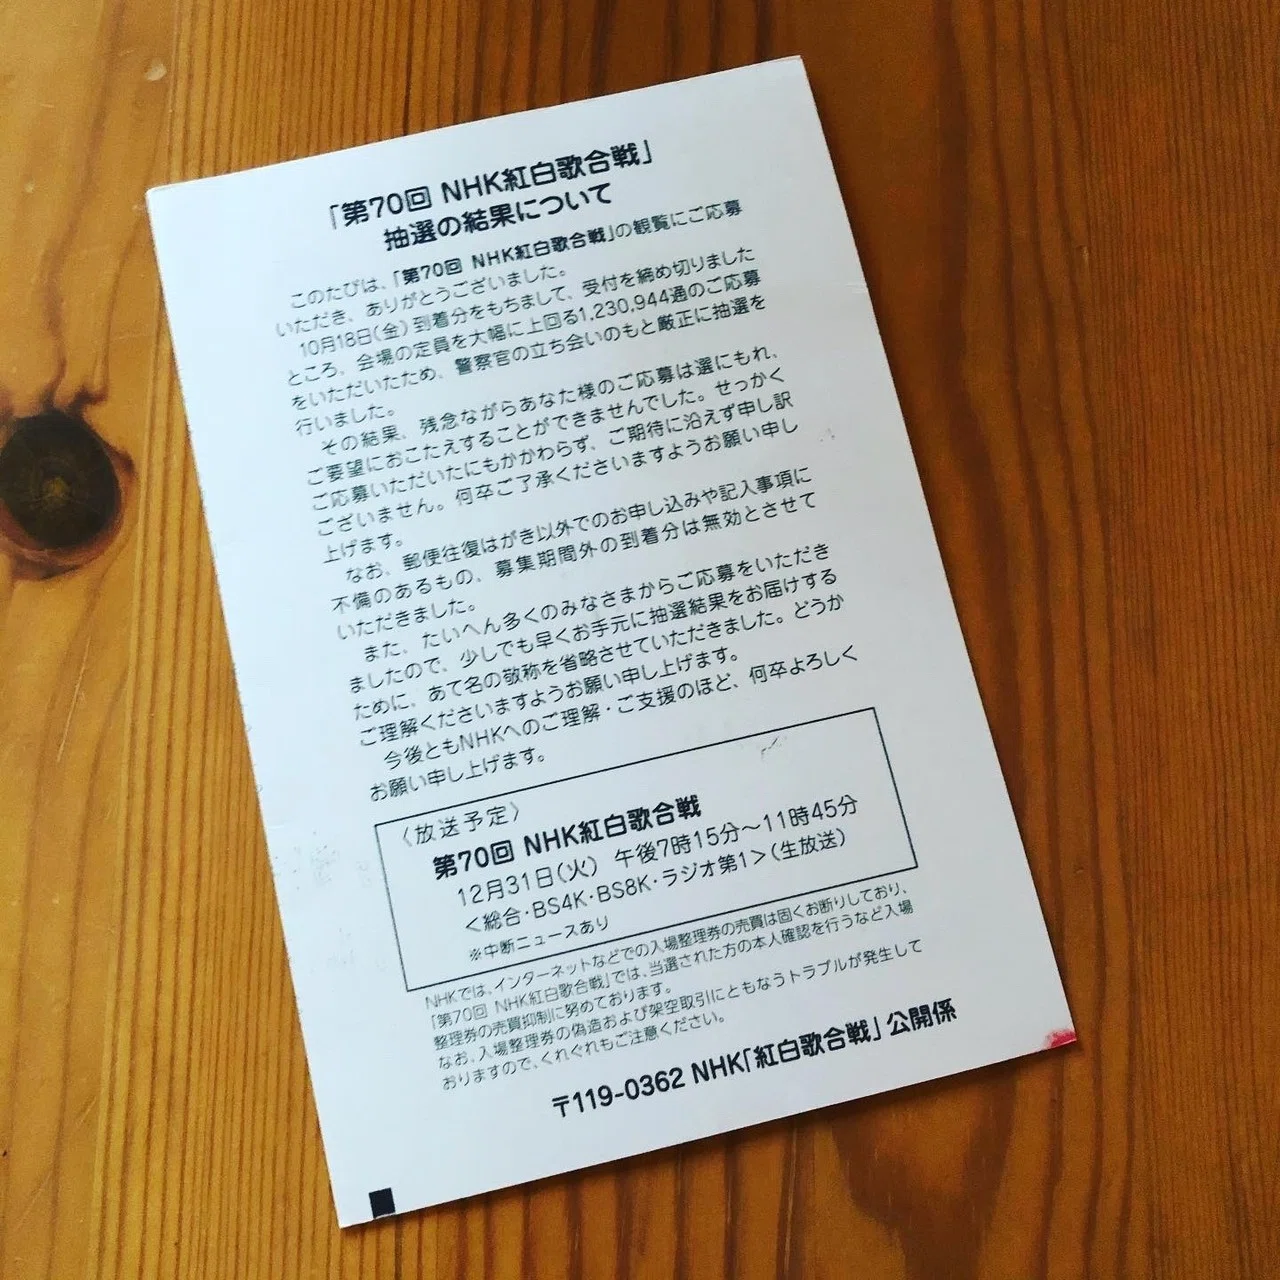 「第70回 NHK紅白歌合戦」
抽選の結果について
このたびは、「第70回 NHK紅白歌合戦」の観覧にご応募
いただき、ありがとうございました。
10月18日(金)到着分をもちまして、受付を締め切りました
ところ、会場の定員を大幅に上回る1,230,944通のご応募
をいただいたため、警察官の立ち会いのもと厳正に抽選を
行いました。
その結果、残念ながらあなた様のご応募は選にもれ、
ご要望におこたえすることができませんでした。せっかく
ご応募いただいたにもかかわらず、ご期待に沿えず申し訳
ございません。何卒ご了承くださいますようお願い申し
上げます。
なお、郵便往復はがき以外でのお申し込みや記入事項に
不備のあるもの、募集期間外の到着分は無効とさせて
いただきました。
また、たいへん多くのみなさまからご応募をいただき
ましたので、少しでも早くお手元に抽選結果をお届けする
ために、あて名の敬称を省略させていただきました。どうか
ご理解くださいますようお願い申し上げます。
今後ともNHKへのご理解・ご支援のほど、何卒よろしく
お願い申し上げます。
〈放送予定〉
第70回 NHK紅白歌合戦
12月31日(火) 午後7時15分〜11時45分
<総合・BS4K・BS8K・ラジオ第1>(生放送)
※中断ニュースあり
NHKでは、インターネットなどでの入場整理券の売買は固くお断りしており、
「第70回 NHK紅白歌合戦」では、当選された方の本人確認を行うなど入場
整理券の売買抑制に努めております。
なお、入場整理券の偽造および架空取引にともなうトラブルが発生して
おりますので、くれぐれもご注意ください。
〒119-0362 NHK「紅白歌合戦」公開係